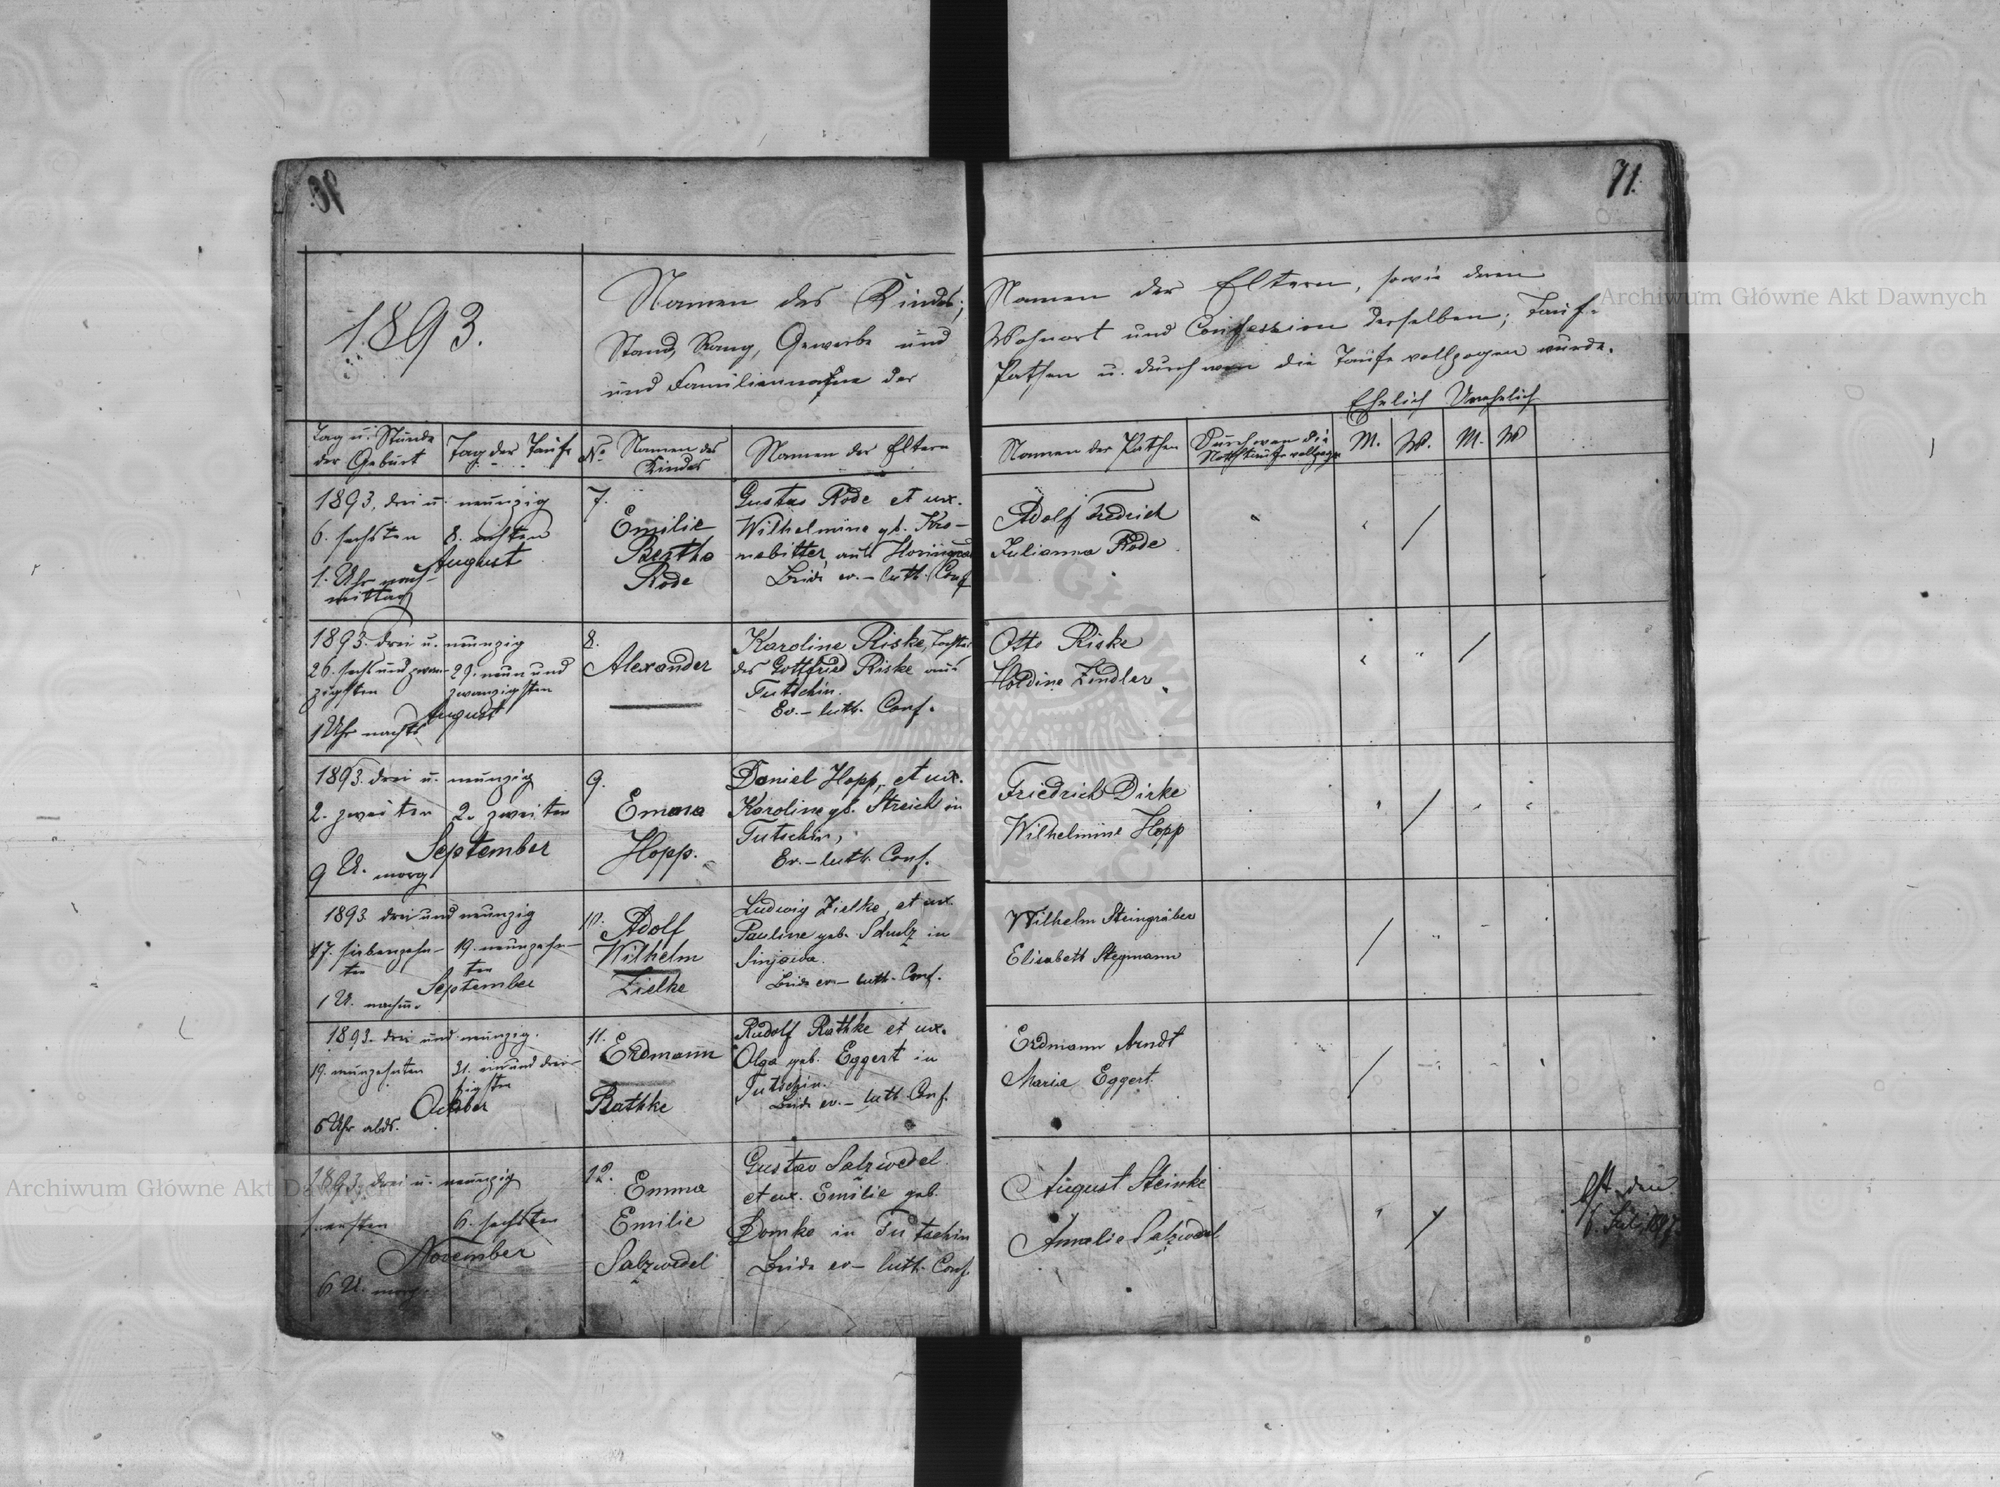 71.
1893.
Namen des Kindes;
Stand, Rang, Gewerbe und
und Familienname der
Namen der Eltern, sowie deren
Wohnort und Confession derselben; Tauf-
Pathen u. durch wen die Taufe vollzogen wurde.
Ehelich Unehelich
Tag u. Stunde
der Geburt
Tag der Taufe
No
Namen des
Kindes
Namen der Eltern
Namen der Pathen
Durch wen die
Nothtaufe vollzogen
M. W. M. W
1893. drei u. neunzig
6. sechsten 8. achten
August
1. Uhr nach-
mittag
7.
Emilie
Bertha
Rode
Gustav Rode et ux.
Wilhelmine gb.
aus
Beide ev.-luth. Conf
Adolf
Julianna Rode
1893. drei u. neunzig
26. sechs und zwan- 29. neun und
zigsten zwanzigsten
August
1 Uhr nachts
8.
Alexander
Karoline Riske, Tochter
des Gottfried Riske aus
Tutschin.
Ev.-luth. Conf.
Otto Riske
Holdine Zindler
1893. drei u. neunzig
2. zweiten 2. zweiten
September
9 U. morg
9.
Emma
Hopp.
Daniel Hopp, et ux.
Karoline gb. Streich in
Tutschin,
Ev.-luth. Conf.
Friedrich Dirke
Wilhelmine Hopp
1893 drei und neunzig
17. siebenzehn- 19. neunzehn-
ten ten
September
1 U. nachm.
10.
Adolf
Wilhelm
Zielke
Ludwig Zielke, et ux.
Pauline geb. Schulz in
Sinjawa.
Beide ev.-luth. Conf.
Wilhelm Steingräber
Elisabeth Stegmann
1893. drei und neunzig.
19. neunzehnten 31. ein und drei-
zigsten
October
6 Uhr abds.
11.
Erdmann
Rathke
Rudolf Rathke et ux.
Olga geb. Eggert in
Tutschin.
Beide ev.-luth. Conf.
Erdmann Arndt
Maria Eggert.
1893. drei u. neunzig
6. sechsten
November
6 U. morg.
12.
Emma
Emilie
Salzwedel
Gustav Salzwedel
et ux. Emilie geb.
Domke in Tutschin
Beide ev-luth. Conf.
August Steinke
Amalie Salzwedel
den
Archiwum Główne Akt Dawnych
Archiwum Główne Akt Dawnych